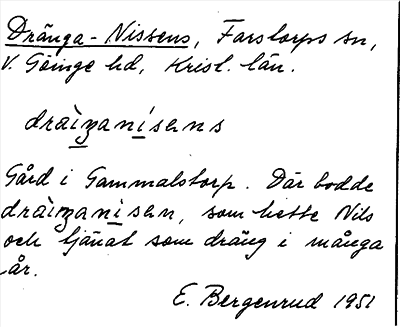 Dränga-Nissens, Farstorps sn,
V. Göinge hd, Krist. län.
Gård i Gammalstorp. Där bodde
som hette Nils
och tjänat som dräng i många
år.
E. Bergenrud 1951